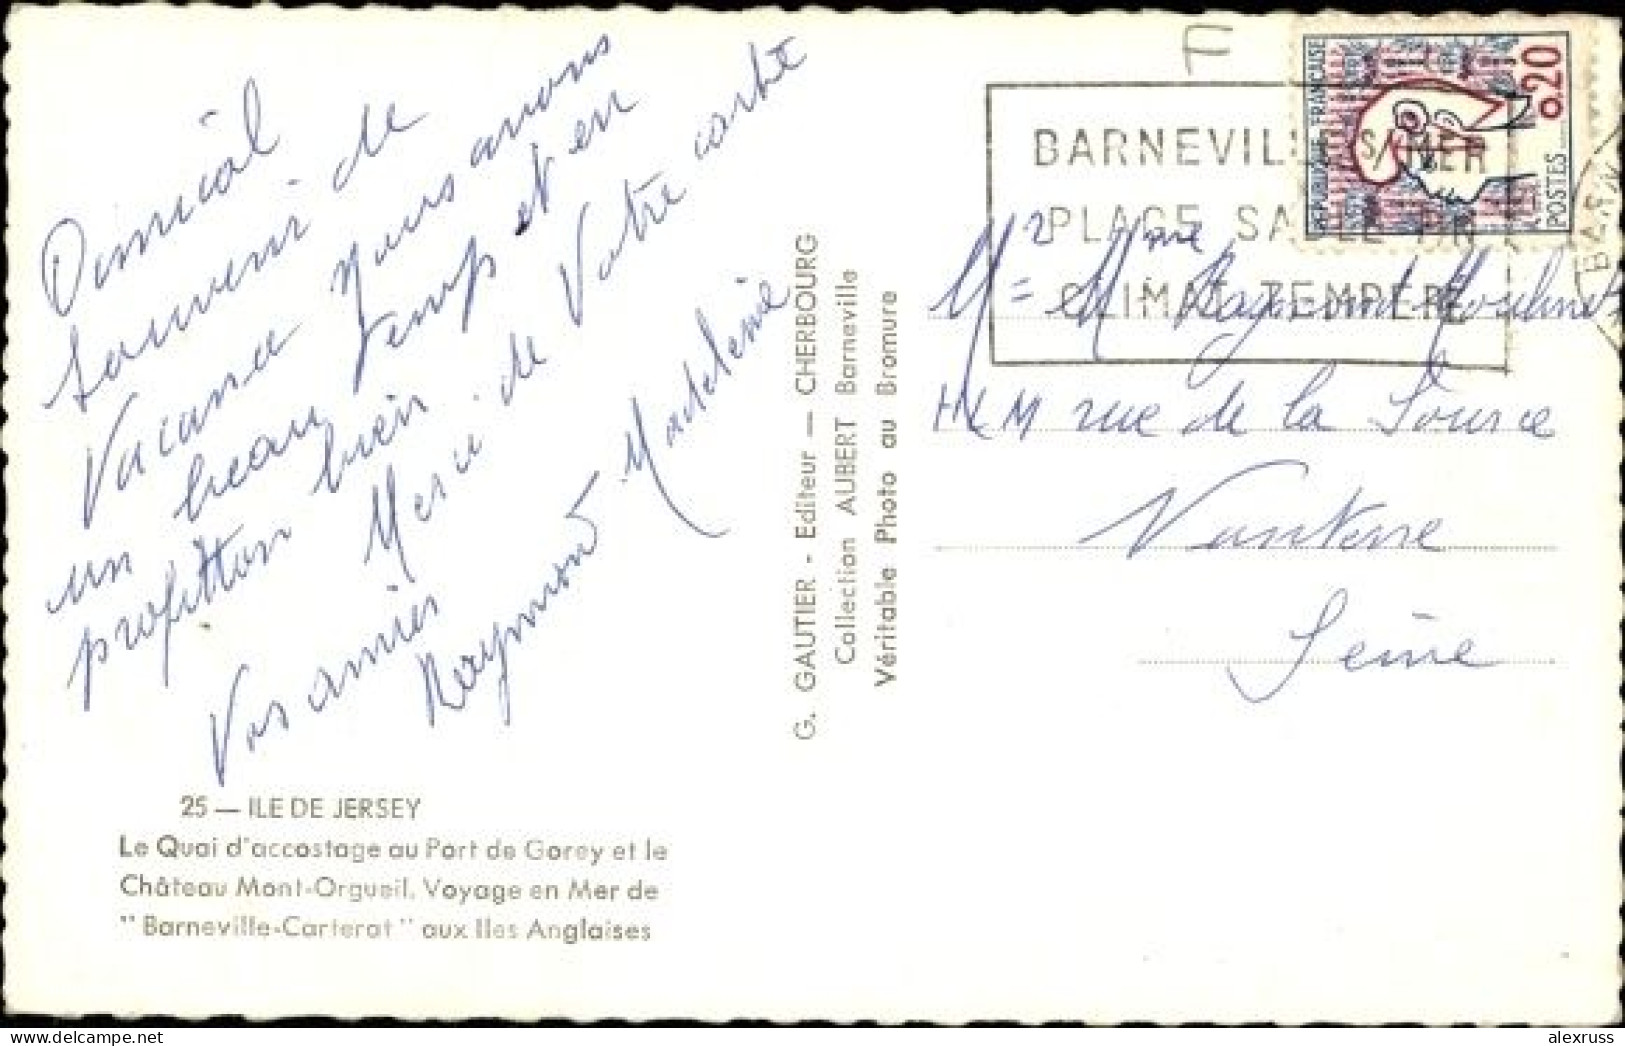 Amical
Souvenir de
Vacance Nous avons
un beau temps et en
profitton bien
Merci de Votre carte
Vos amies
Raymond Madeleine
25 — ILE DE JERSEY
Le Quai d'accostage au Port de Gorey et le
Château Mont-Orgueil. Voyage en Mer de
"Barneville-Carteret" aux Iles Anglaises
G. GAUTIER - Editeur — CHERBOURG
Collection AUBERT Barneville
Véritable Photo au Bromure
F
BARNEVILLE S/MER
PLAGE SABLE FIN
CLIMAT TEMPERE
REPUBLIQUE FRANCAISE
0,20
POSTES
BARN
Mr Mme Raymond
HLM rue de la Source
Nanterre
Seine
alexruss